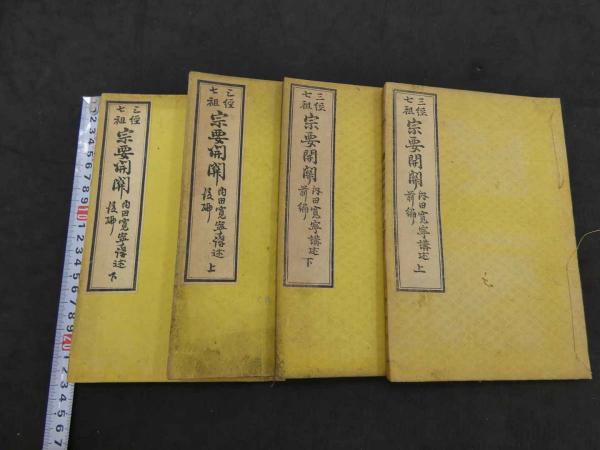 三経
七祖
宗要開關
内田寛寧講述
前編
上
三経
七祖
宗要開關
内田寛寧講述
前編
下
三経
七祖
宗要開關
内田寛寧講述
後編
上
三経
七祖
宗要開關
内田寛寧講述
後編
下
1 2 3 4 5 6 7 8 9 10 1 2 3 4 5 6 7 8 9 20 1 2 3 4 5 6 7